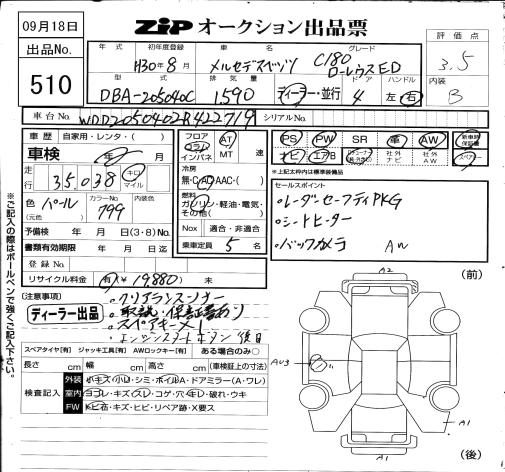 09月18日
出品No.
510
ZiP オークション出品票
年式 初年度登録 車名 グレード
H30年8月 メルセデスベンツ C180 ローレウスED
型式 排気量 ドア ハンドル
DBA-205040C 1590 ディーラー・並行 4 左・右
評価点
3.5
内装
B
車台No. WDD2050402R422719 シリアルNo.
車歴 自家用・レンタ・( )
車検 年 月
走行 35,038 キロ マイル
色(元色) パール カラーNo. 799 内装色
予備検 年 月 日(3・8)No.
書類有効期限 年 月 日迄
登録No.
リサイクル料金 有 ¥19,880 未
フロア コラム インパネ AT MT 速
冷房
無・C・AC・AAC・( )
燃料
ガソリン・軽油・電気・その他( )
Nox 適合・非適合
乗車定員 5 名
PS PW SR 革 AW 新車時保証書
ナビ エアB 社外ナビ 社外AW スペアキー
*上記太枠内は標準装備品
セールスポイント
・レーダーセーフティPKG
・シートヒーター
・バックカメラ AW
(注意事項)
ディーラー出品
・クリアランスソナー
・取説・保証書あり
・スペアキー×1
・エンジンスタートボタン 後日
スペアタイヤ[有] ジャッキ工具[有] AWロックキー[有] ある場合のみ○
長さ cm 幅 cm 高さ cm (車検証上の寸法)
検査記入
外装 小キズ・小凹・シミ・ボイルA・ドアミラー(A・ワレ)
室内 ヨゴレ・キズ・スレ・コゲ・穴・キレ・破れ・ウキ
FW トビ石・キズ・ヒビ・リペア跡・X要ス
※ご記入の際はボールペンで強くご記入下さい。
(前)
A2
AU3
A1
A1
(後)